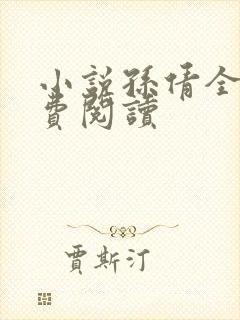 小説孫倩全
費閱讀
賈斯汀